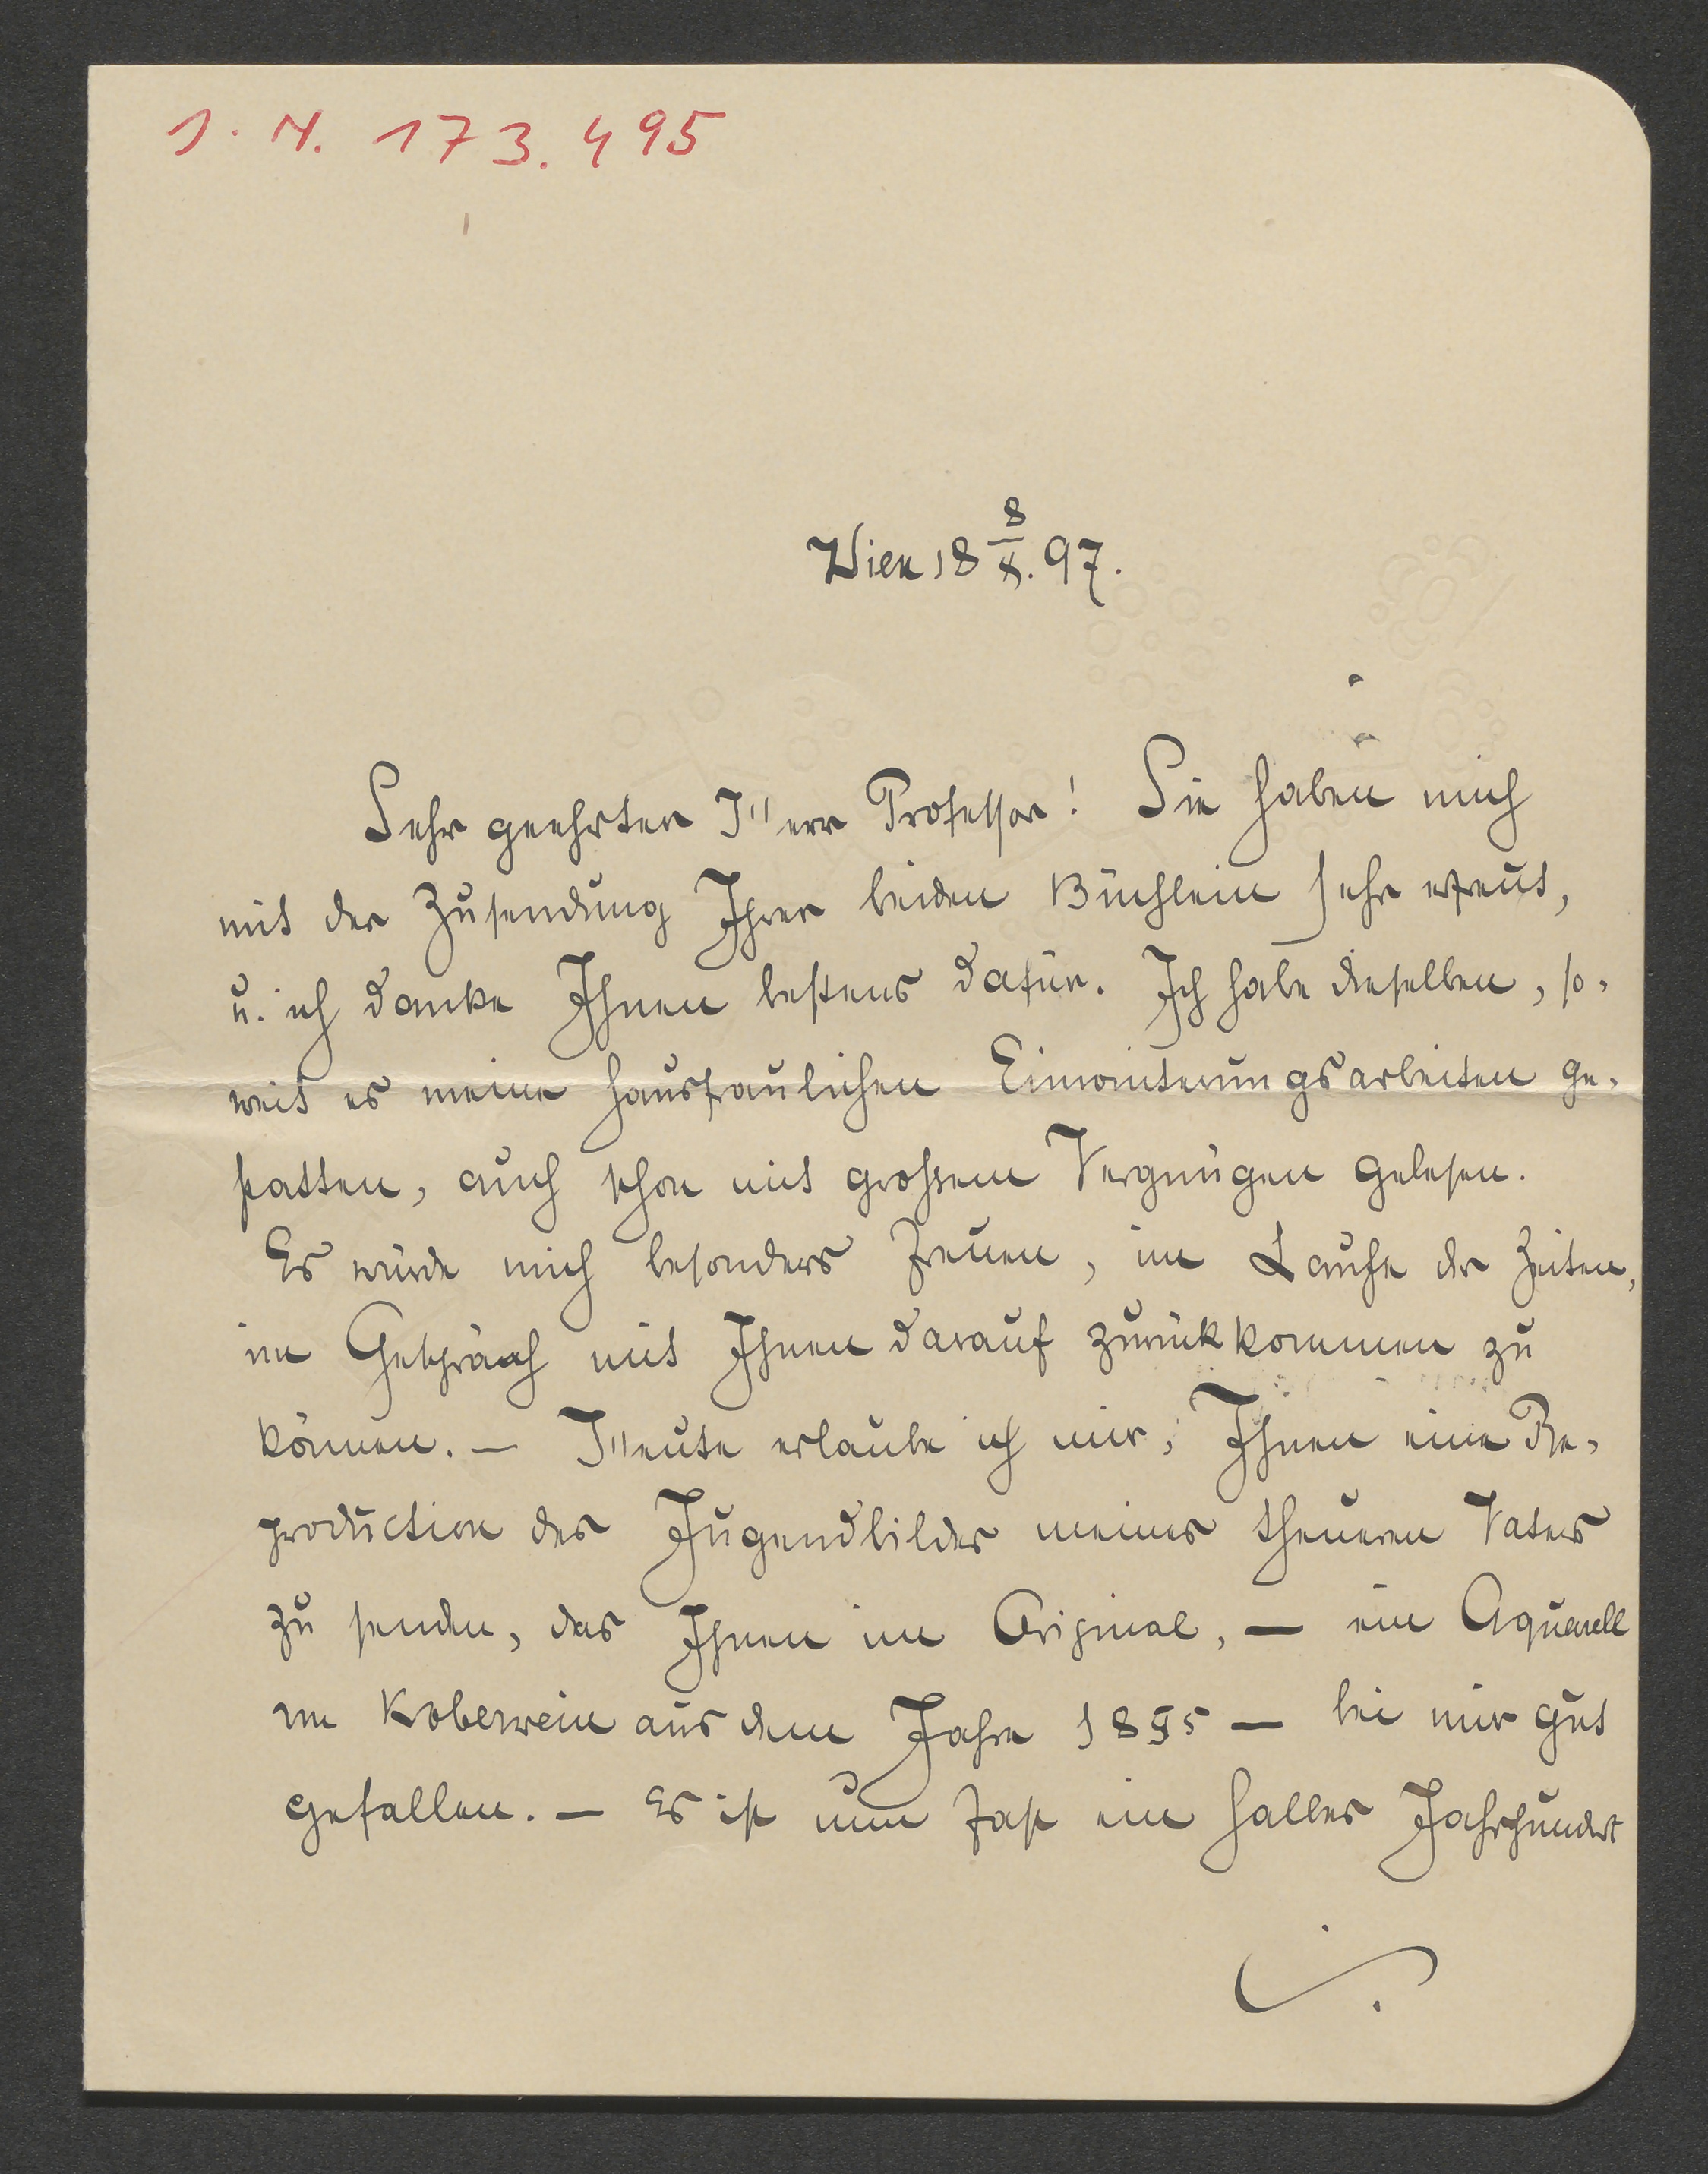 I. N. 173.495
Wien 18 8/X. 97.
Sehr geehrter Herr Professor! Sie haben mich
mit der Zusendung Ihrer beiden Büchlein sehr erfreut,
u. ich danke Ihnen bestens dafür. Ich habe dieselben, so-
weit es meine hausfraulichen Einwinterungsarbeiten ge-
statten, auch schon mit grossem Vergnügen gelesen.
Es würde mich besonders freuen, im Laufe der Zeiten,
im Gespräch mit Ihnen darauf zurückkommen zu
können. — Heute erlaube ich mir, Ihnen eine Re-
production des Jugendbildes meines theueren Vaters
zu senden, das Ihnen im Original, — ein Aquarell
von Koberwein aus dem Jahre 1855 — bei mir gut
gefallen. — Es ist nun fast ein halbes Jahrhundert